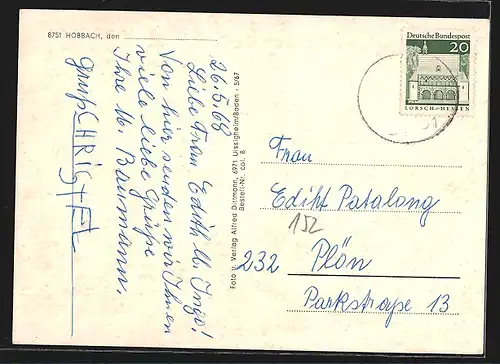 8751 HOBBACH, den
26.5.68
Liebe Frau Edith u. Ingo!
Von hier senden wir Ihnen
viele liebe Grüße
Ihre U. Baumann.
Gruß CHRISTEL
Foto u. Verlag Alfred Dittmann, 6971 Uissigheim/Baden · 5/67
Bestell-Nr. col. 8
Deutsche Bundespost
20
LORSCH · HESSEN
Frau
Edith Patalong
152
232 Plön
Parkstraße 13